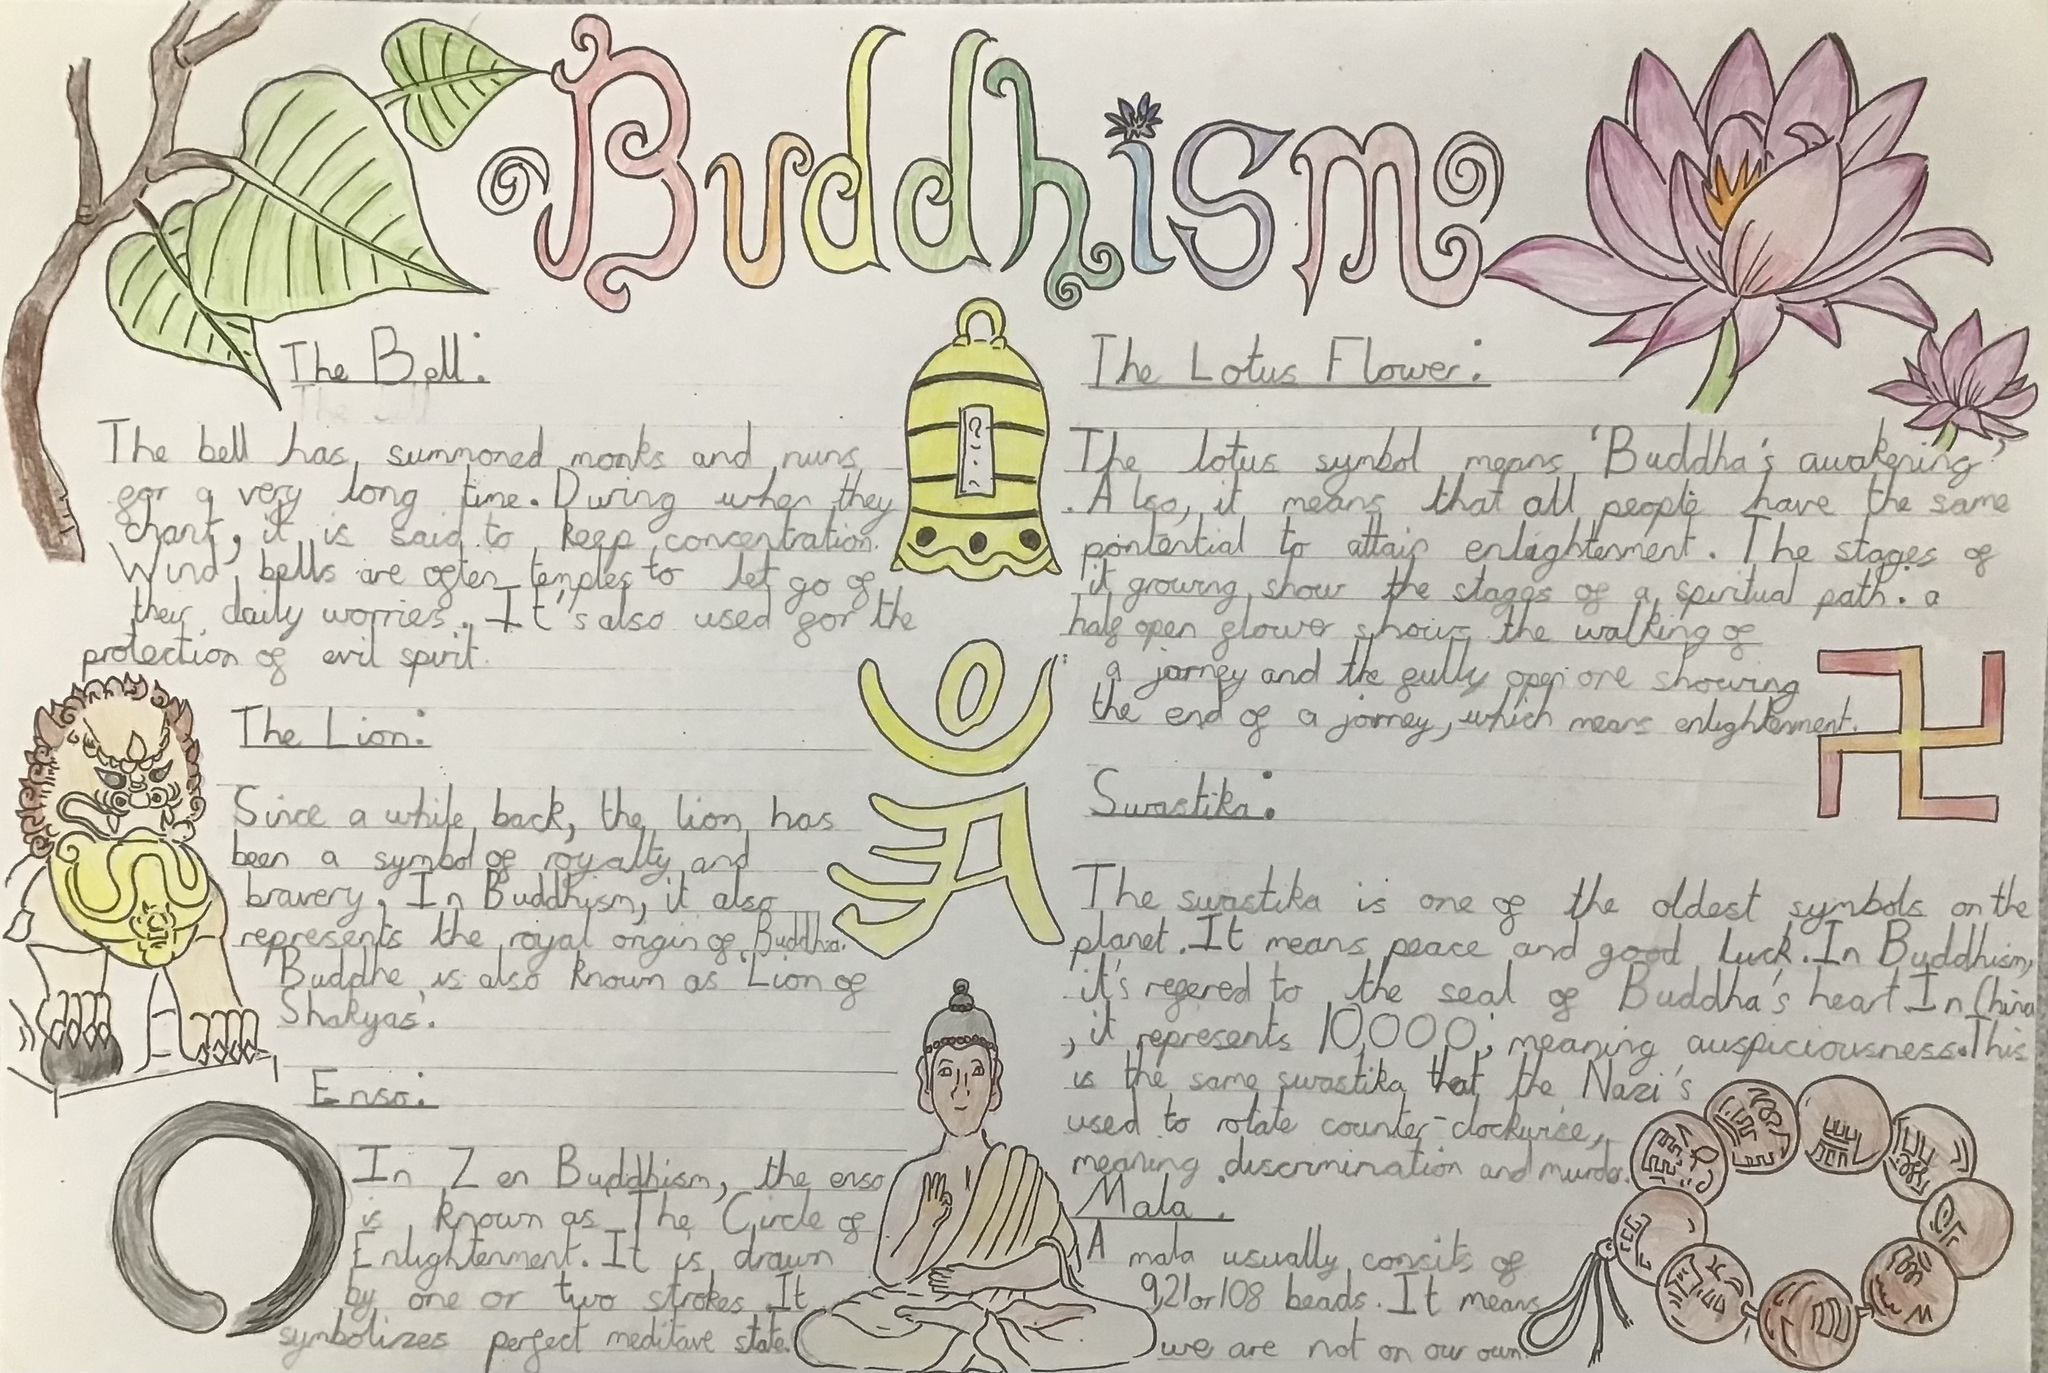 Buddhism
The Bell:
The bell has summoned monks and nuns
for a very long time. During when they
chant, it is said to keep concentration.
Wind bells are often temples to let go of
they daily worries. It's also used for the
protection of evil spirit.
The Lion:
Since a while back, the lion has
been a symbol of royalty and
bravery. In Buddhism, it also
represents the royal origin of Buddha.
Buddhe is also known as 'Lion of
Shakyas'.
Enso:
In Zen Buddhism, the enso
is known as The Circle of
Enlightenment. It is drawn
by one or two strokes. It
symbolizes perfect meditave state.
The Lotus Flower:
The lotus symbol means 'Buddha's awakening'
. Also, it means that all people have the same
pontential to attain enlightenment. The stages of
it growing show the stages of a spiritual path. a
half open flower shows the walking of
a jorney and the fully open one showing
the end of a jorney, which means enlightenment.
Swastika:
The swastika is one of the oldest symbols on the
planet. It means peace and good luck. In Buddhism,
it's refered to the seal of Buddha's heart. In China
, it represents 10,000; meaning auspiciousness. This
is the same swastika that the Nazi's
used to rotate counter-clockwise,
meaning discrimination and murder.
Mala:
A mala usually consits of
9,21 or 108 beads. It means
we are not on our own.